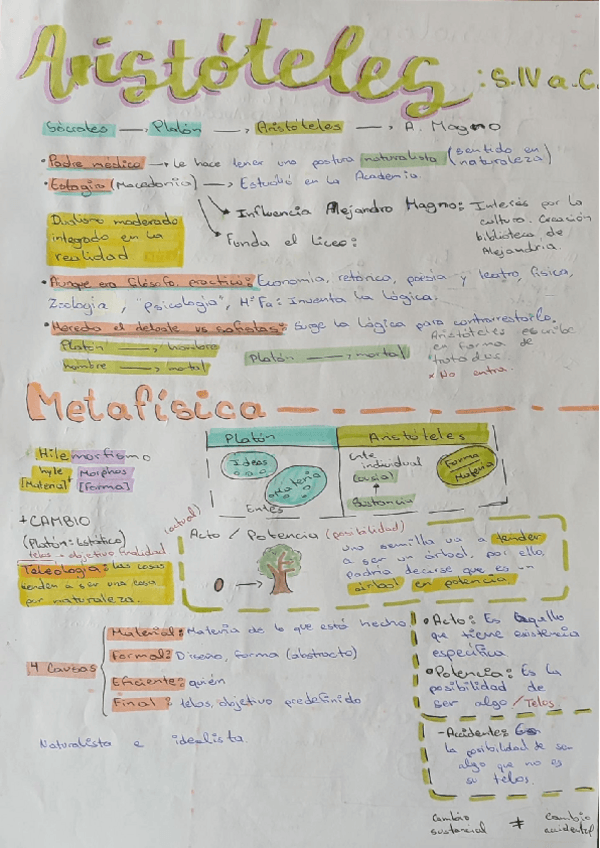 Aristóteles : S. IV a. C.
Sócrates → Platón → Aristóteles → A. Magno
• Padre médico → Le hace tener una postura naturalista (sentido en naturaleza)
• Estagira (Macedonia) → Estudió en la Academia
• Influencia Alejandro Magno: Interés por la cultura. Creación biblioteca de Alejandría.
• Funda el Liceo:
Dualismo moderado integrado en la realidad
• Aunque era filósofo, practicó: Economía, retórica, poesía y teatro, física,
Zoología, "psicología", HªFa: Inventa la lógica.
• Hereda el debate vs sofistas: Surge la Lógica para contrarrestarlo.
Platón → hombre
hombre → mortal
Platón → mortal
Aristóteles escribe
en forma de
tratados.
* No entra.
Metafísica
Hilemorfismo
hyle [Materia] + Morphos [Forma]
Platón
Aristóteles
Ideas
Materia
Entes
Ente
individual
Sustancia
Forma
Materia
+ CAMBIO
(Platón: Estático)
telos → objetivo finalidad
Teleología: las cosas
tienden a ser una cosa
por naturaleza.
(actual)
Acto / Potencia (posibilidad)
una semilla va a tender
a ser un árbol, por ello,
podría decirse que es un
árbol en potencia
4 Causas
Material: Materia de lo que está hecho
Formal: Diseño, forma (abstracto)
Eficiente: quién
Final: telos, objetivo predefinido
Naturalista e idealista
• Acto: Es aquello
que tiene existencia
específica
• Potencia: Es la
posibilidad de
ser algo / Telos
- Accidente:
la posibilidad de ser
algo que no es
su telos.
Cambio sustancial ≠ cambio accidental